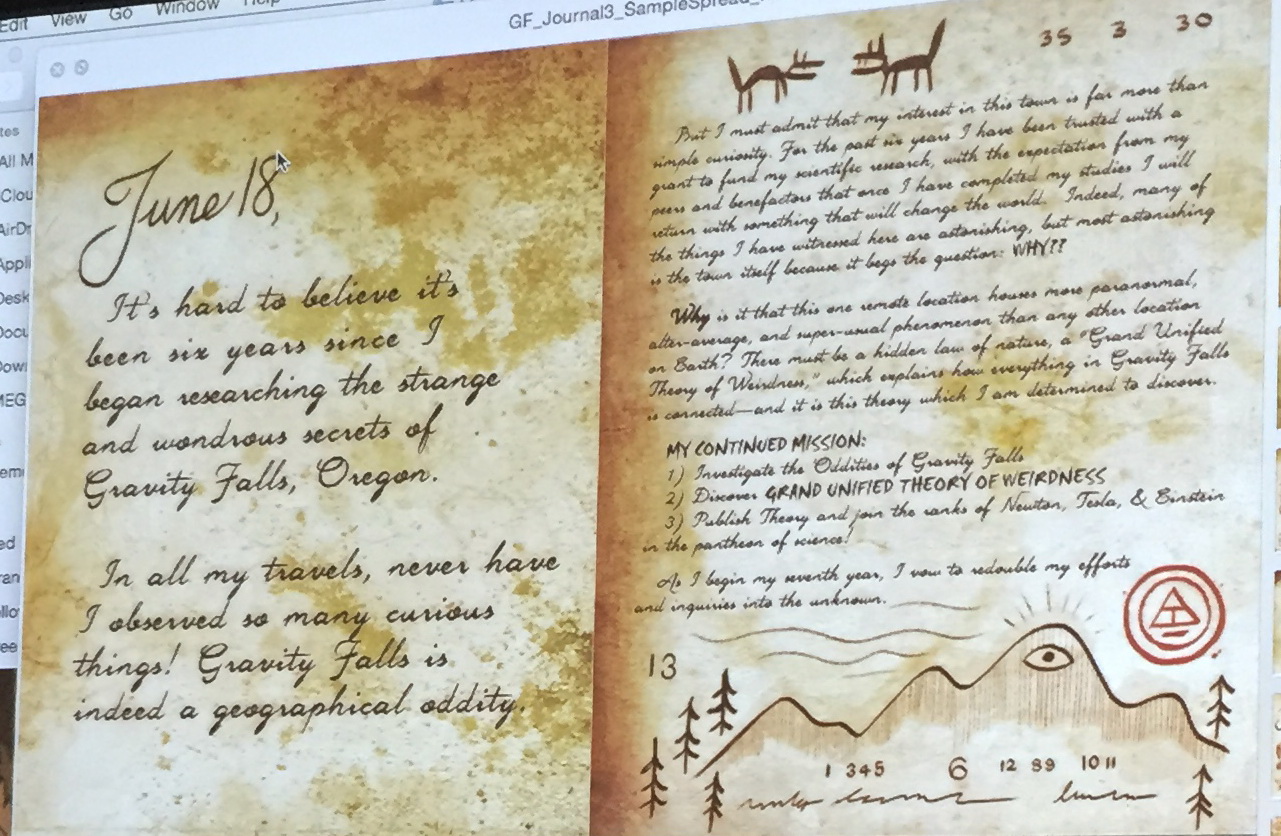 Edit View Go Window Help
GF_Journal3_SampleSpread_
June 18,
It's hard to believe it's
been six years since I
began researching the strange
and wondrous secrets of
Gravity Falls, Oregon.
In all my travels, never have
I observed so many curious
things! Gravity Falls is
indeed a geographical oddity.
35 3 30
But I must admit that my interest in this town is far more than
simple curiosity. For the past six years I have been trusted with a
grant to fund my scientific research, with the expectation from my
peers and benefactors that once I have completed my studies I will
return with something that will change the world. Indeed, many of
the things I have witnessed here are astonishing, but most astonishing
is the town itself because it begs the question: WHY??
Why is it that this one remote location houses more paranormal,
alter-average, and super-usual phenomenon than any other location
on Earth? There must be a hidden law of nature, a "Grand Unified
Theory of Weirdness," which explains how everything in Gravity Falls
is connected—and it is this theory which I am determined to discover.
MY CONTINUED MISSION:
1) Investigate the Oddities of Gravity Falls
2) Discover GRAND UNIFIED THEORY OF WEIRDNESS
3) Publish Theory and join the ranks of Newton, Tesla, & Einstein
in the pantheon of science!
As I begin my seventh year, I vow to redouble my efforts
and inquiries into the unknown.
13
1 345 6 12 89 10 11